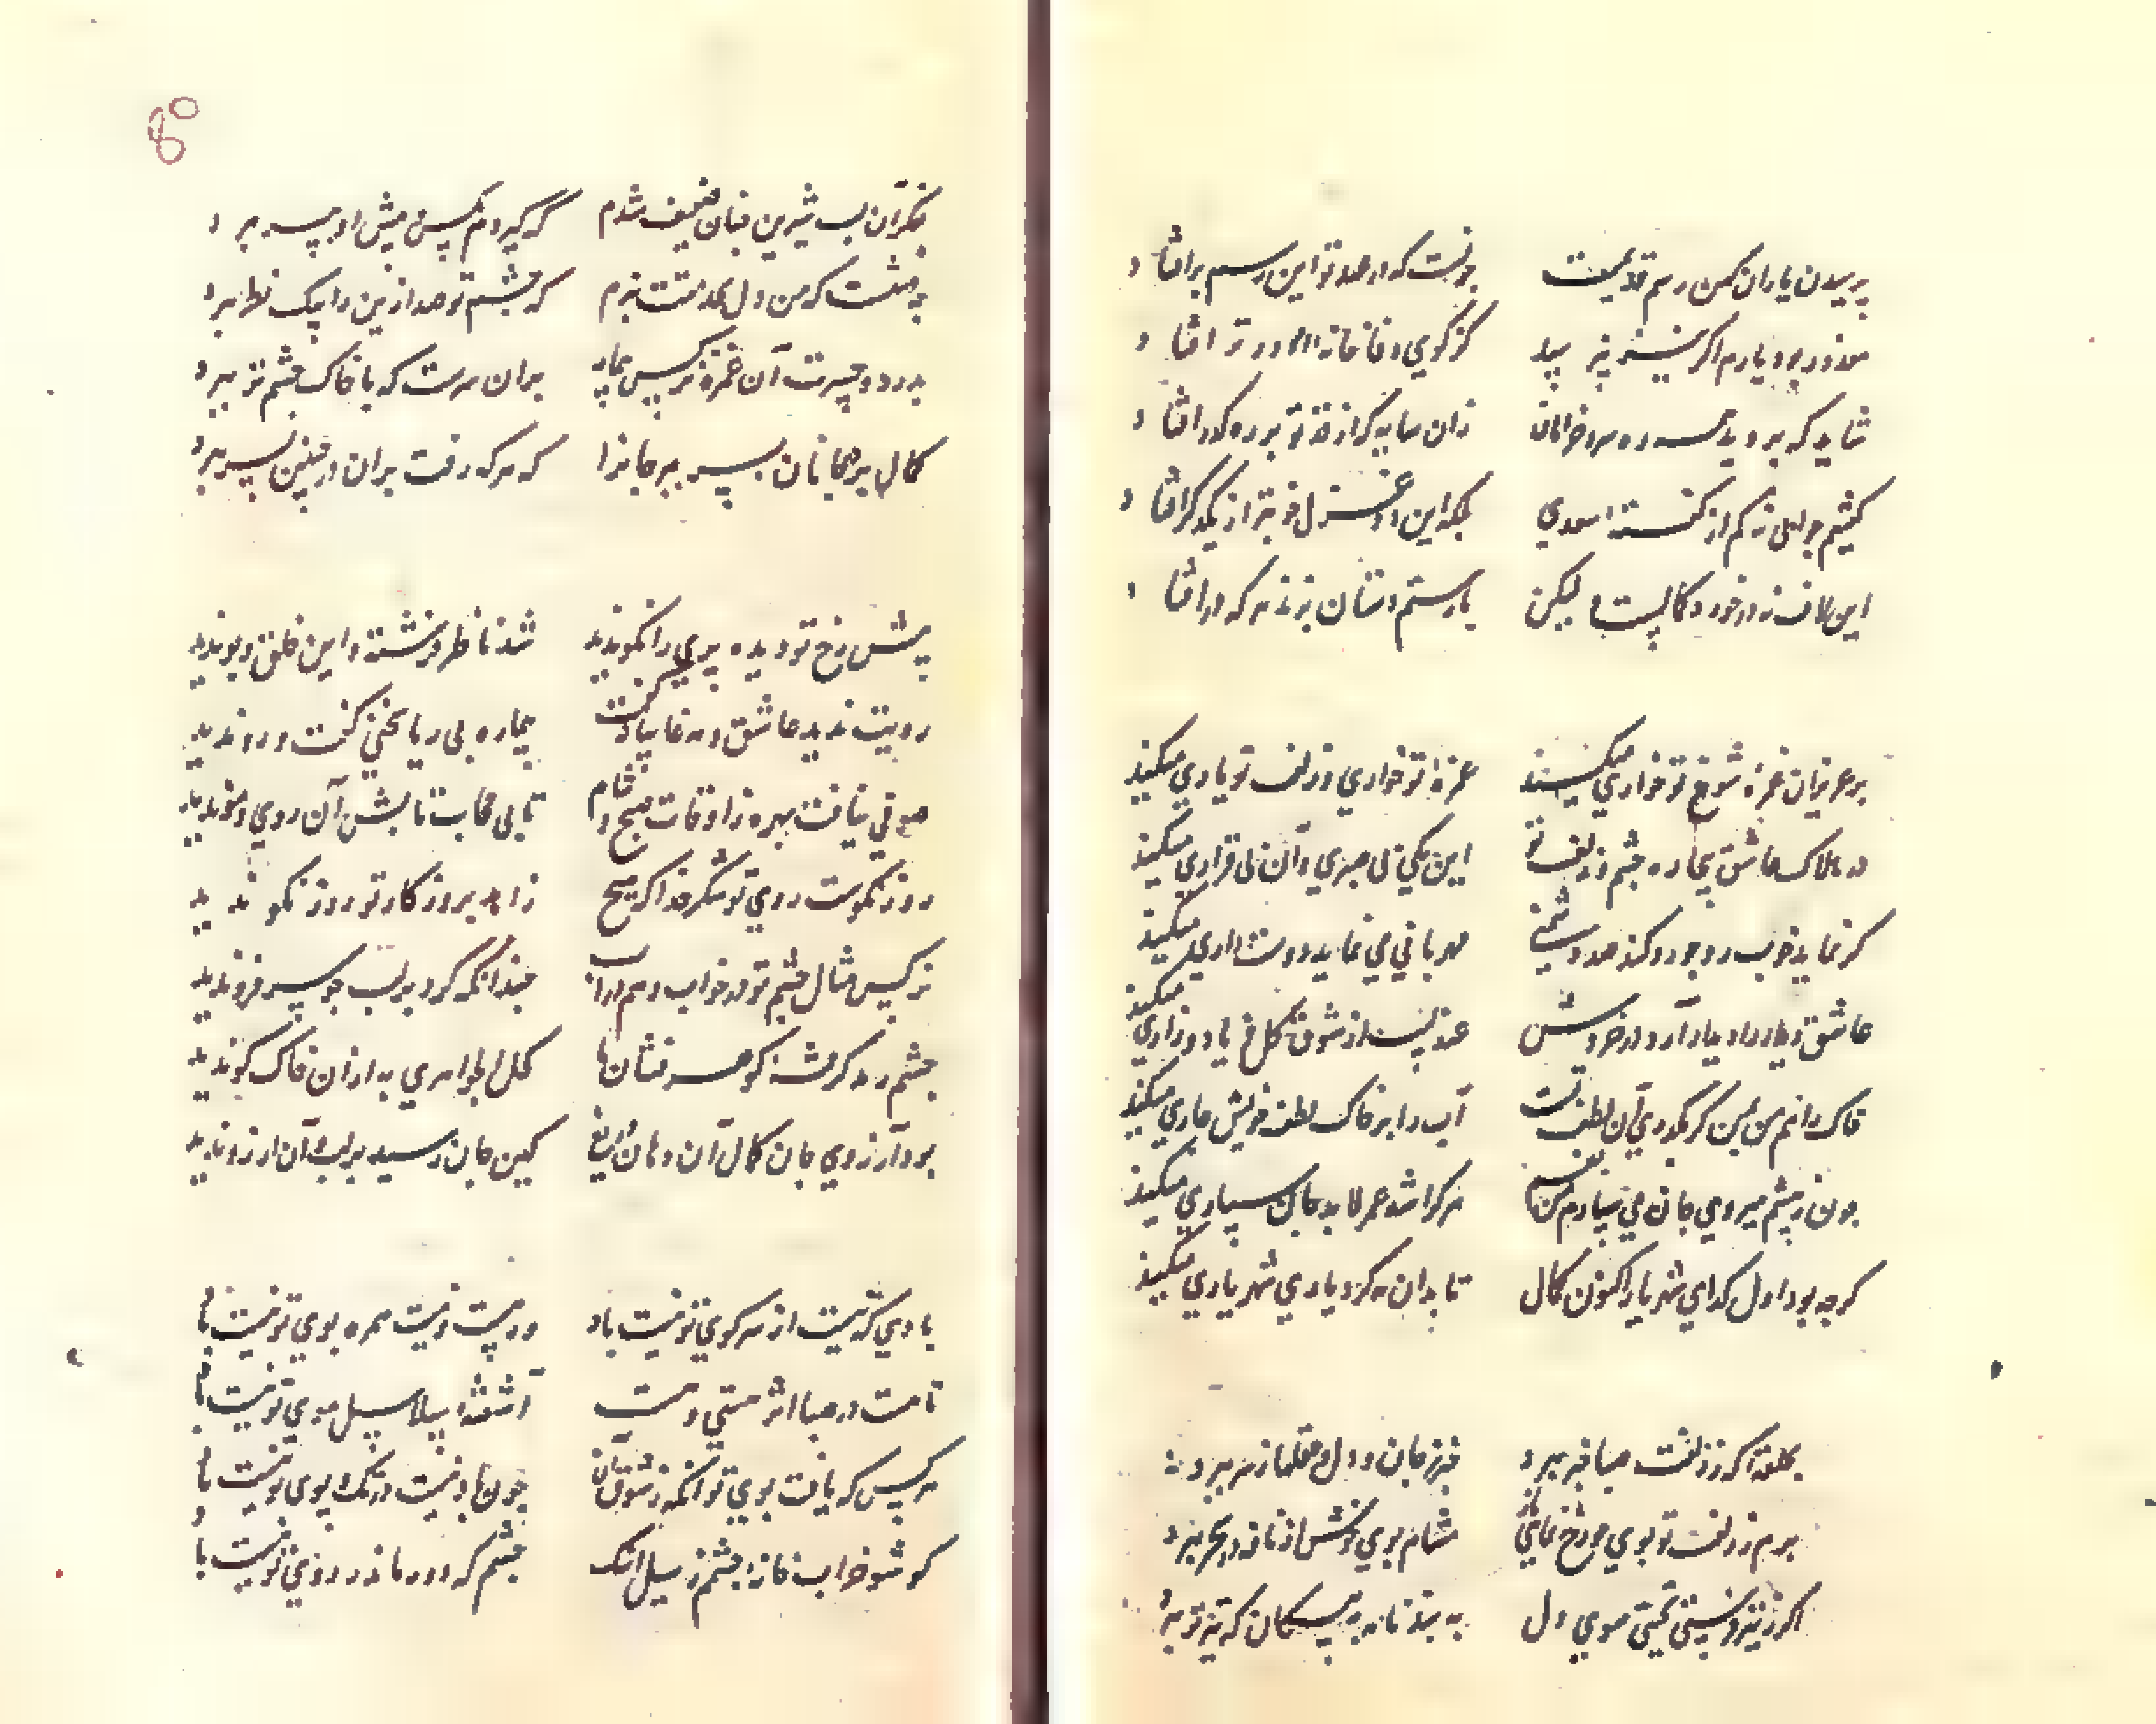 پرسیدن یاران کهن رسم قدیمست
چونست که در عهد تو این رسم برافتاد
معذور بود یارم اگر نپرسید
کز کوی وفا خانه او دورتر افتاد
شاید که بروید همه ره سرو خرامان
زان سایه کز قد تو بر رهگذر افتاد
گفتیم جوابی نه کم از گفته سعدی
بلکه این دو غزل خوبتر از یکدگر افتاد
این لاف نه در خورد کمالست لیکن
با رستم دستان بزند هر که درافتاد
بر عزیزان غمزه شوخ تو خواری میکند
غمزه تو خواری و زلف تو یاری میکند
در هلاک عاشق بیچاره چشم و زلف تو
این یکی بی صبری و آن بی قراری میکند
گر نماید خوب رو جور و کند صد دشمنی
مهربانی می نماید دوستداری میکند
عاشق دیدار را دیدار آرد در خروش
عندلیب از شوق گل فریاد و زاری میکند
خاک دانم من که بگذری آن لطف تست
آب را بر خاک لطف خویش جاری میکند
چون ز چشم میروی جان می سپارم
هر کرا شد عمر لابد جان سپاری میکند
گرچه بود اول گدای شهر یار اکنون کمال
تا بدان مه کرد یاری شهریاری میکند
بحلقه که ز زلفت صبا خبر ببرد
خبر ز جان و دل و عقل ما ز سر ببرد
برم ز زلف تو بوی چو رخ نمایی
مشام بوی خوش از نافه در سحر ببرد
اگر ز تیر و نشینی بحیتی سوی دل
به بند نامه به پیکان که تیزتر ببرد
بفکر آن لب شیرین چنان ضعیف شدم
که گیردم مگس و پیش او بسر ببرد
چه منتست که من دل بخدمتت ببرم
که چشم تو صد ازین را بیک نظر ببرد
بدرد و حسرت آن غمزه نرگس بیمار
بران سرست که با خاک چشم تر ببرد
کمال بر در جانان بسر ببر جانرا
که هر که رفت بران در چنین بسر ببرد
پیش رخ تو دیده پری را نکو ندید
شد ناظر فرشته و این خلق و بو ندید
رویت ندید عاشق و مه غایبانه گفت
بیچاره بی ریا سخنی گفت و رو ندید
صوفی نیافت بهره ز اوقات صبح و شام
تا بی حجاب تابش آن روی و مو ندید
روز نکوست روی تو شکر خدا که صبح
زاهد بروزگار تو روز نکو ندید
نرگس مثال چشم تو در خواب و هم در آب
چندانکه گرد بر لب جو سر فرو ندید
چشم رمد گرفته گوهر فشان ما
کحل الجواهری به ازان خاک کو ندید
بود آرزوی جان کمال آن دهان دریغ
کین جان رسید بر لب و آن آرزو ندید
بادی که نیست از سر کوی تو نیست باد
و دمیست نیست همره بوی تو نیست باد
تا هست در صبا اثر هستی و مست
آشفته سلاسل موی تو نیست باد
هر کس که یافت بوی تو آنگه ز شوق آن
چون باد نیست در تک و پوی تو نیست باد
گو شو خراب خانه چشمم ز سیل اشک
چشم که دور ماند ز روی تو نیست باد